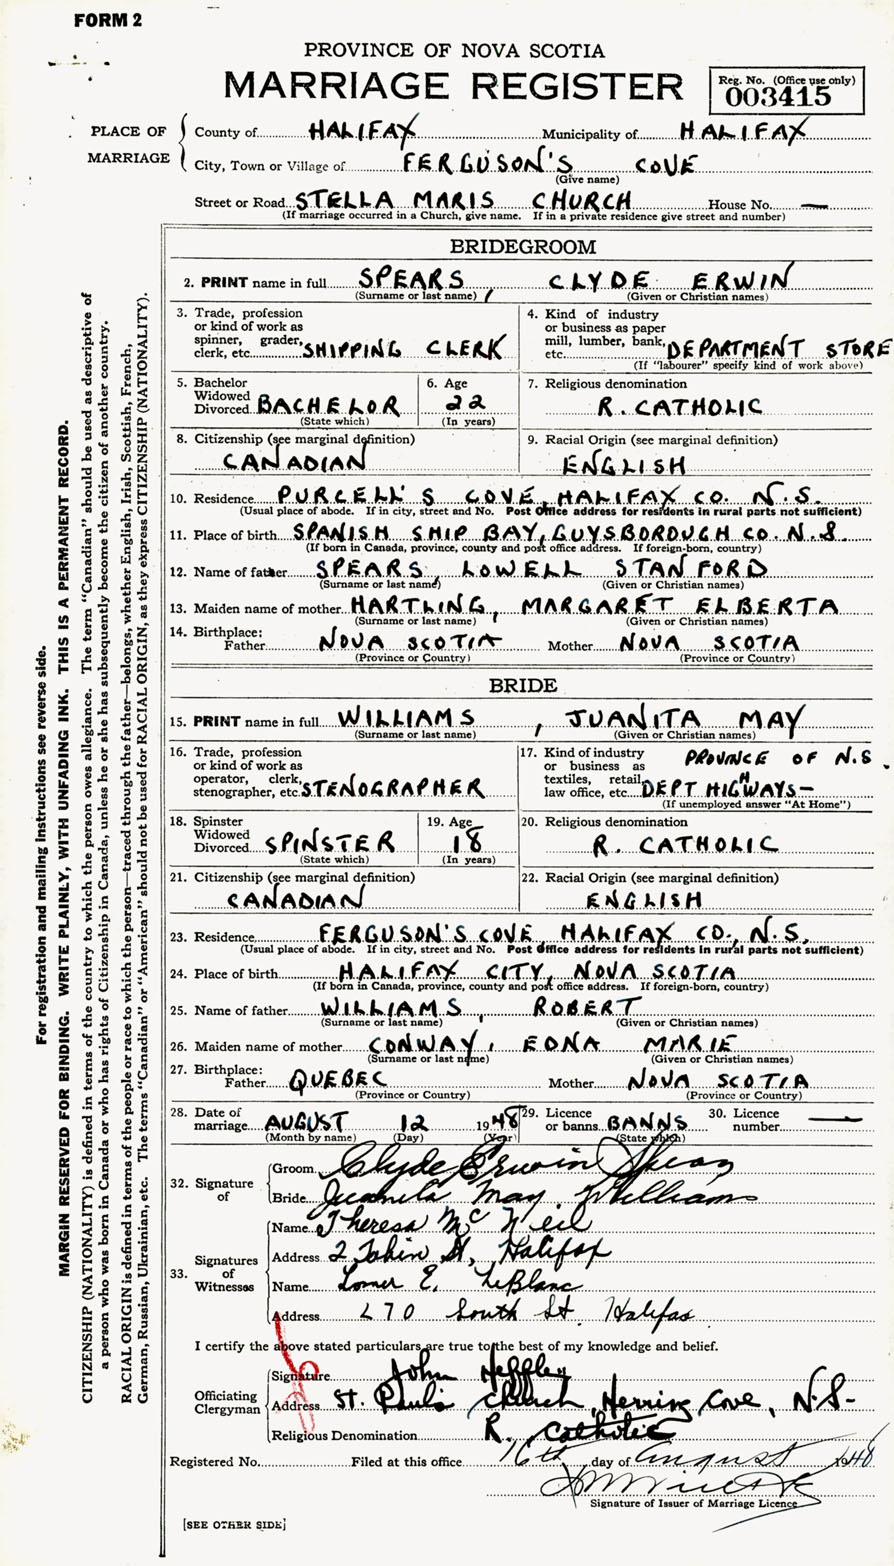 FORM 2
PROVINCE OF NOVA SCOTIA
MARRIAGE REGISTER
Reg. No. (Office use only)
003415
PLACE OF MARRIAGE
County of HALIFAX Municipality of HALIFAX
City, Town or Village of FERGUSON'S COVE
(Give name)
Street or Road STELLA MARIS CHURCH House No. —
(If marriage occurred in a Church, give name. If in a private residence give street and number)
BRIDEGROOM
2. PRINT name in full SPEARS, CLYDE ERWIN
(Surname or last name) (Given or Christian names)
3. Trade, profession or kind of work as spinner, grader, clerk, etc. SHIPPING CLERK
4. Kind of industry or business as paper mill, lumber, bank, etc. DEPARTMENT STORE
(If "labourer" specify kind of work above)
5. Bachelor Widowed Divorced BACHELOR
(State which)
6. Age 22
(In years)
7. Religious denomination
R. CATHOLIC
8. Citizenship (see marginal definition)
CANADIAN
9. Racial Origin (see marginal definition)
ENGLISH
10. Residence PURCELL'S COVE, HALIFAX CO. N.S.
(Usual place of abode. If in city, street and No. Post Office address for residents in rural parts not sufficient)
11. Place of birth SPANISH SHIP BAY, GUYSBOROUGH CO. N.S.
(If born in Canada, province, county and post office address. If foreign-born, country)
12. Name of father SPEARS, LOWELL STANFORD
(Surname or last name) (Given or Christian names)
13. Maiden name of mother HARTLING, MARGARET ELBERTA
(Surname or last name) (Given or Christian names)
14. Birthplace:
Father NOVA SCOTIA Mother NOVA SCOTIA
(Province or Country) (Province or Country)
BRIDE
15. PRINT name in full WILLIAMS, JUANITA MAY
(Surname or last name) (Given or Christian names)
16. Trade, profession or kind of work as operator, clerk, stenographer, etc. STENOGRAPHER
17. Kind of industry or business as textiles, retail, law office, etc. PROVINCE OF N.S. DEPT HIGHWAYS—
(If unemployed answer "At Home")
18. Spinster Widowed Divorced SPINSTER
(State which)
19. Age 18
(In years)
20. Religious denomination
R. CATHOLIC
21. Citizenship (see marginal definition)
CANADIAN
22. Racial Origin (see marginal definition)
ENGLISH
23. Residence FERGUSON'S COVE HALIFAX CO., N.S.
(Usual place of abode. If in city, street and No. Post Office address for residents in rural parts not sufficient)
24. Place of birth HALIFAX CITY, NOVA SCOTIA
(If born in Canada, province, county and post office address. If foreign-born, country)
25. Name of father WILLIAMS, ROBERT
(Surname or last name) (Given or Christian names)
26. Maiden name of mother CONWAY, EDNA MARIE
(Surname or last name) (Given or Christian names)
27. Birthplace:
Father QUEBEC Mother NOVA SCOTIA
(Province or Country) (Province or Country)
28. Date of marriage AUGUST 12 1948
(Month by name) (Day) (Year)
29. Licence or banns BANNS
(State which)
30. Licence number —
32. Signature of
Groom Clyde Erwin Spears
Bride Juanita May Williams
33. Signatures of Witnesses
Name Theresa McNeil
Address 2 Tobin St, Halifax
Name Lomer E. LeBlanc
Address 270 South St. Halifax
I certify the above stated particulars are true to the best of my knowledge and belief.
Officiating Clergyman
Signature John Heffley
Address St. Paul's Church, Herring Cove, N.S.
Religious Denomination R. Catholic
Registered No. Filed at this office 16th day of August 1948
Signature of Issuer of Marriage Licence
[SEE OTHER SIDE]
For registration and mailing instructions see reverse side.
MARGIN RESERVED FOR BINDING. WRITE PLAINLY, WITH UNFADING INK. THIS IS A PERMANENT RECORD.
CITIZENSHIP (NATIONALITY) is defined in terms of the country to which the person owes allegiance. The term "Canadian" should be used as descriptive of
a person who was born in Canada or who has rights of Citizenship in Canada, unless he or she has subsequently become the citizen of another country.
RACIAL ORIGIN is defined in terms of the people or race to which the person—traced through the father—belongs, whether English, Irish, Scottish, French,
German, Russian, Ukrainian, etc. The terms "Canadian" or "American" should not be used for RACIAL ORIGIN, as they express CITIZENSHIP (NATIONALITY).